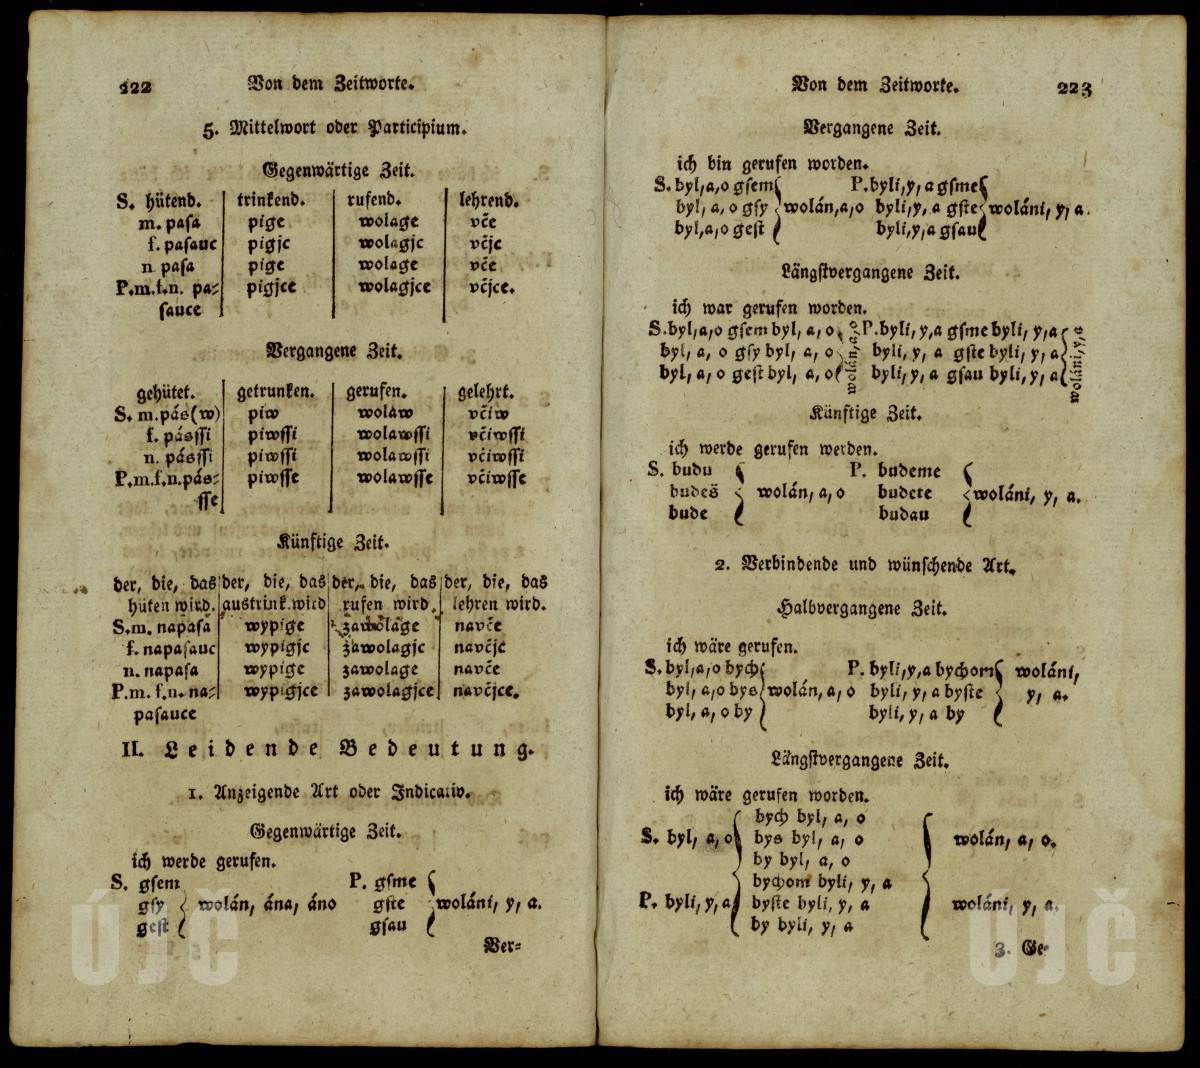 222 Von dem Zeitworte.
5. Mittelwort oder Participium.
Gegenwärtige Zeit.
S. hütend. trinkend. rufend. lehrend.
m. pasa pige wolage vče
f. pasauc pigjc wolagjc včjc
n pasa pige wolage vče
P.m.f.n. pa- pigjce wolagjce včjce.
sauce
Vergangene Zeit.
gehütet. getrunken. gerufen. gelehrt.
S. m. pás(w) piw wolaw včiw
f. pásssi piwssi wolawssi včiwssi
n. pásssi piwssi wolawssi včiwssi
P.m.f.n.pás- piwsse wolawsse včiwsse
sse
Künftige Zeit.
der, die, das der, die, das der, die, das der, die, das
hüten wird. austrink. wird rufen wird. lehren wird.
S.m. napasa wypige zawolage navče
f. napasauc wypigjc zawolagjc navčjc
n. napasa wypige zawolage navče
P.m. f.n. na- wypigjce zawolagjce navčjce.
pasauce
II. Leidende Bedeutung.
1. Anzeigende Art oder Indicativ.
Gegenwärtige Zeit.
ich werde gerufen.
S. gsem P. gsme
gsy wolán, ána, áno gste woláni, y, a.
gest gsau
Ver-
Von dem Zeitworte. 223
Vergangene Zeit.
ich bin gerufen worden.
S. byl, a, o gsem P. byli, y, a gsme
byl, a, o gsy wolán, a, o byli, y, a gste woláni, y, a.
byl, a, o gest byli, y, a gsau
Längstvergangene Zeit.
ich war gerufen worden.
S. byl, a, o gsem byl, a, o wolán, a, o P. byli, y, a gsme byli, y, a woláni, y, a
byl, a, o gsy byl, a, o byli, y, a gste byli, y, a
byl, a, o gest byl, a, o byli, y, a gsau byli, y, a
Künftige Zeit.
ich werde gerufen werden.
S. budu P. budeme
budeš wolán, a, o budete woláni, y, a.
bude budau
2. Verbindende und wünschende Art.
Halbvergangene Zeit.
ich wäre gerufen.
S. byl, a, o bych P. byli, y, a bychom woláni,
byl, a, o bys wolán, a, o byli, y, a byste y, a.
byl, a, o by byli, y, a by
Längstvergangene Zeit.
ich wäre gerufen worden.
bych byl, a, o
S. byl, a, o bys byl, a, o wolán, a, o.
by byl, a, o
bychom byli, y, a
P. byli, y, a byste byli, y, a woláni, y, a.
by byli, y, a
3. Ge-
ÚJČ
ÚJČ